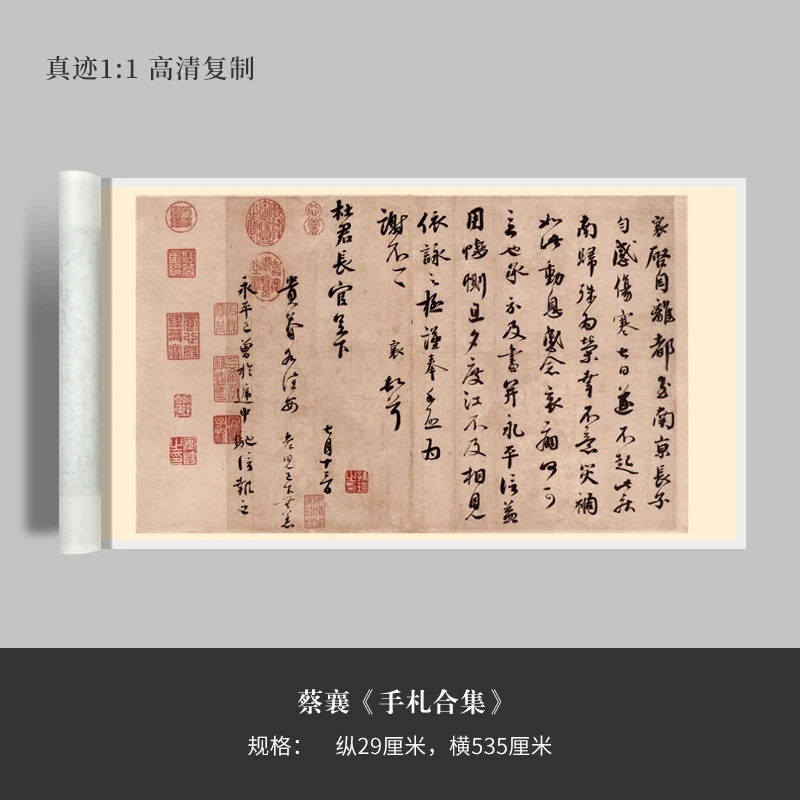 真迹1:1 高清复制
襄啓自離都至南京長子
匀感傷寒七日遂不起此疾
南歸殊為榮幸不意災禍
如此動息感念哀痛何可
言也承示及書并永平信益
用悽惻旦夕度江不及相見
依詠之極謹奉手啓為
謝不一一 襄頓首
杜君長官足下
七月十三日
貴眷各佳安 老兒已下無恙
永平已曾於遞中馳信報之
蔡襄《手札合集》
规格： 纵29厘米，横535厘米